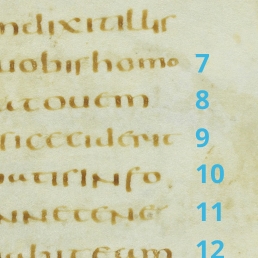 ndixitillis
uobishomo 7
atouem 8
siceciderit 9
batisinfo 10
nnetene 11
12